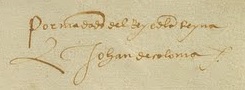 Por mandado del Rey e dela Reyna
Johan de coloma